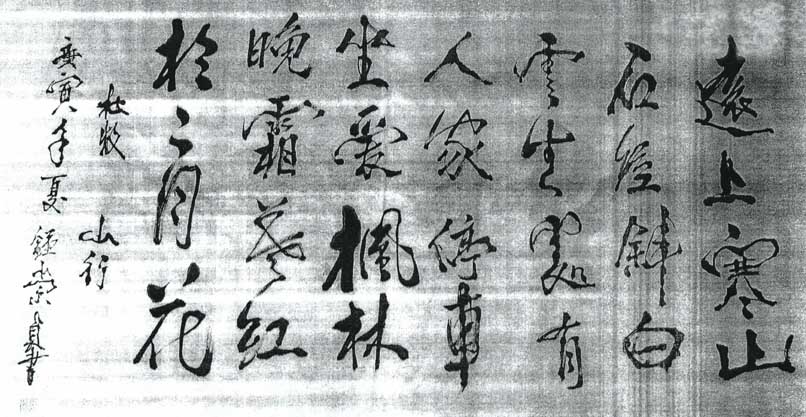 遠上寒山
石徑斜白
雲生處有
人家停車
坐愛楓林
晚霜葉紅
於二月花
杜牧 山行
庚寅年夏 鍾崇貞書